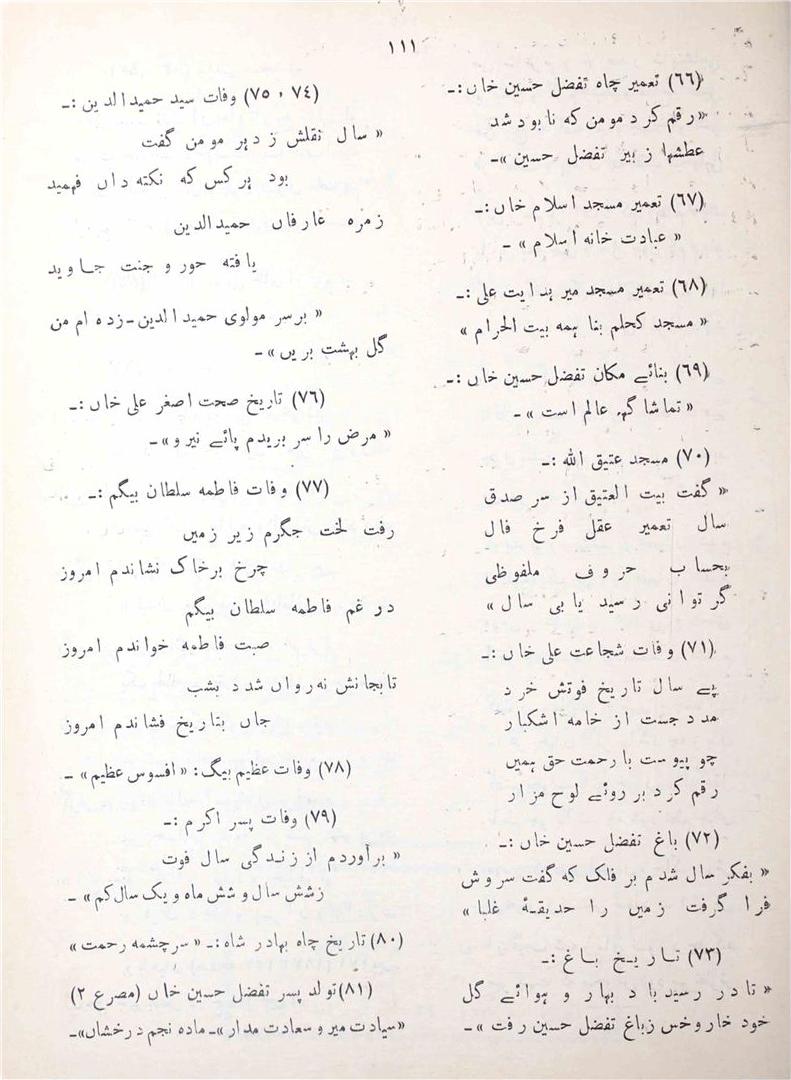 ۱۱۱
(۶۶) تعمیر چاہ تفضل حسین خاں :ـ
«رقم کرد مومن کہ نابود شد
عطشہا ز بیر تفضل حسین»ـ
(۶۷) تعمیر مسجد اسلام خاں :ـ
«عبادت خانہ اسلام» ـ
(۶۸) تعمیر مسجد میر ہدایت علی :ـ
«مسجد کحلم بنا ہمہ بیت الحرام»
(۶۹) بنائے مکان تفضل حسین خاں :ـ
«تماشا گہہ عالم است»ـ
(۷۰) مسجد عتیق اللہ :ـ
«گفت بیت العتیق از سر صدق
سال تعمیر عقل فرخ فال
بحساب حروف ملفوظی
گر توانی رسید یابی سال»
(۷۱) وفات شجاعت علی خاں :ـ
پے سال تاریخ فوتش خرد
مدد جست از خامہ اشکبار
چو پیوست با رحمت حق ہمیں
رقم کرد بر روئے لوح مزار
(۷۲) باغ تفضل حسین خاں :ـ
«بفکر سال شدم بر فلک کہ گفت سروش
فرا گرفت زمیں را حدیقۂ غلبا»
(۷۳) تاریخ باغ :ـ
«تا در رسید باد بہار و ہوائے گل
خود خار و خس ز باغ تفضل حسین رفت»ـ
(۷۴ ، ۷۵) وفات سید حمید الدین :ـ
«سال نقلش ز دہر مومن گفت
بود ہر کس کہ نکتہ داں فہمید
زمرہ عارفاں حمید الدین
یافتہ حور و جنت جاوید
«بر سر مولوی حمید الدین ـ زدہ ام من
گل بہشت بریں»ـ
(۷۶) تاریخ صحت اصغر علی خاں :ـ
«مرض را سر بریدم پائے نیرو»ـ
(۷۷) وفات فاطمہ سلطان بیگم :ـ
رفت لخت جگرم زیر زمیں
چرخ بر خاک نشاندم امروز
در غم فاطمہ سلطان بیگم
صبت فاطمہ خواندم امروز
تا بجانش نہ رواں شدد بشب
جاں بتاریخ فشاندم امروز
(۷۸) وفات عظیم بیگ : «افسوس عظیم» ـ
(۷۹) وفات پسر اکرم :ـ
«برآوردم از زندگی سال فوت
ز شش سال و شش ماہ و یک سال کم» ـ
(۸۰) تاریخ چاہ بہادر شاہ :ـ «سرچشمہ رحمت»
(۸۱) تولد پسر تفضل حسین خاں (مصرع ۲)
«سیادت میر و سعادت مدار»ـ مادہ نجم درخشاں»ـ